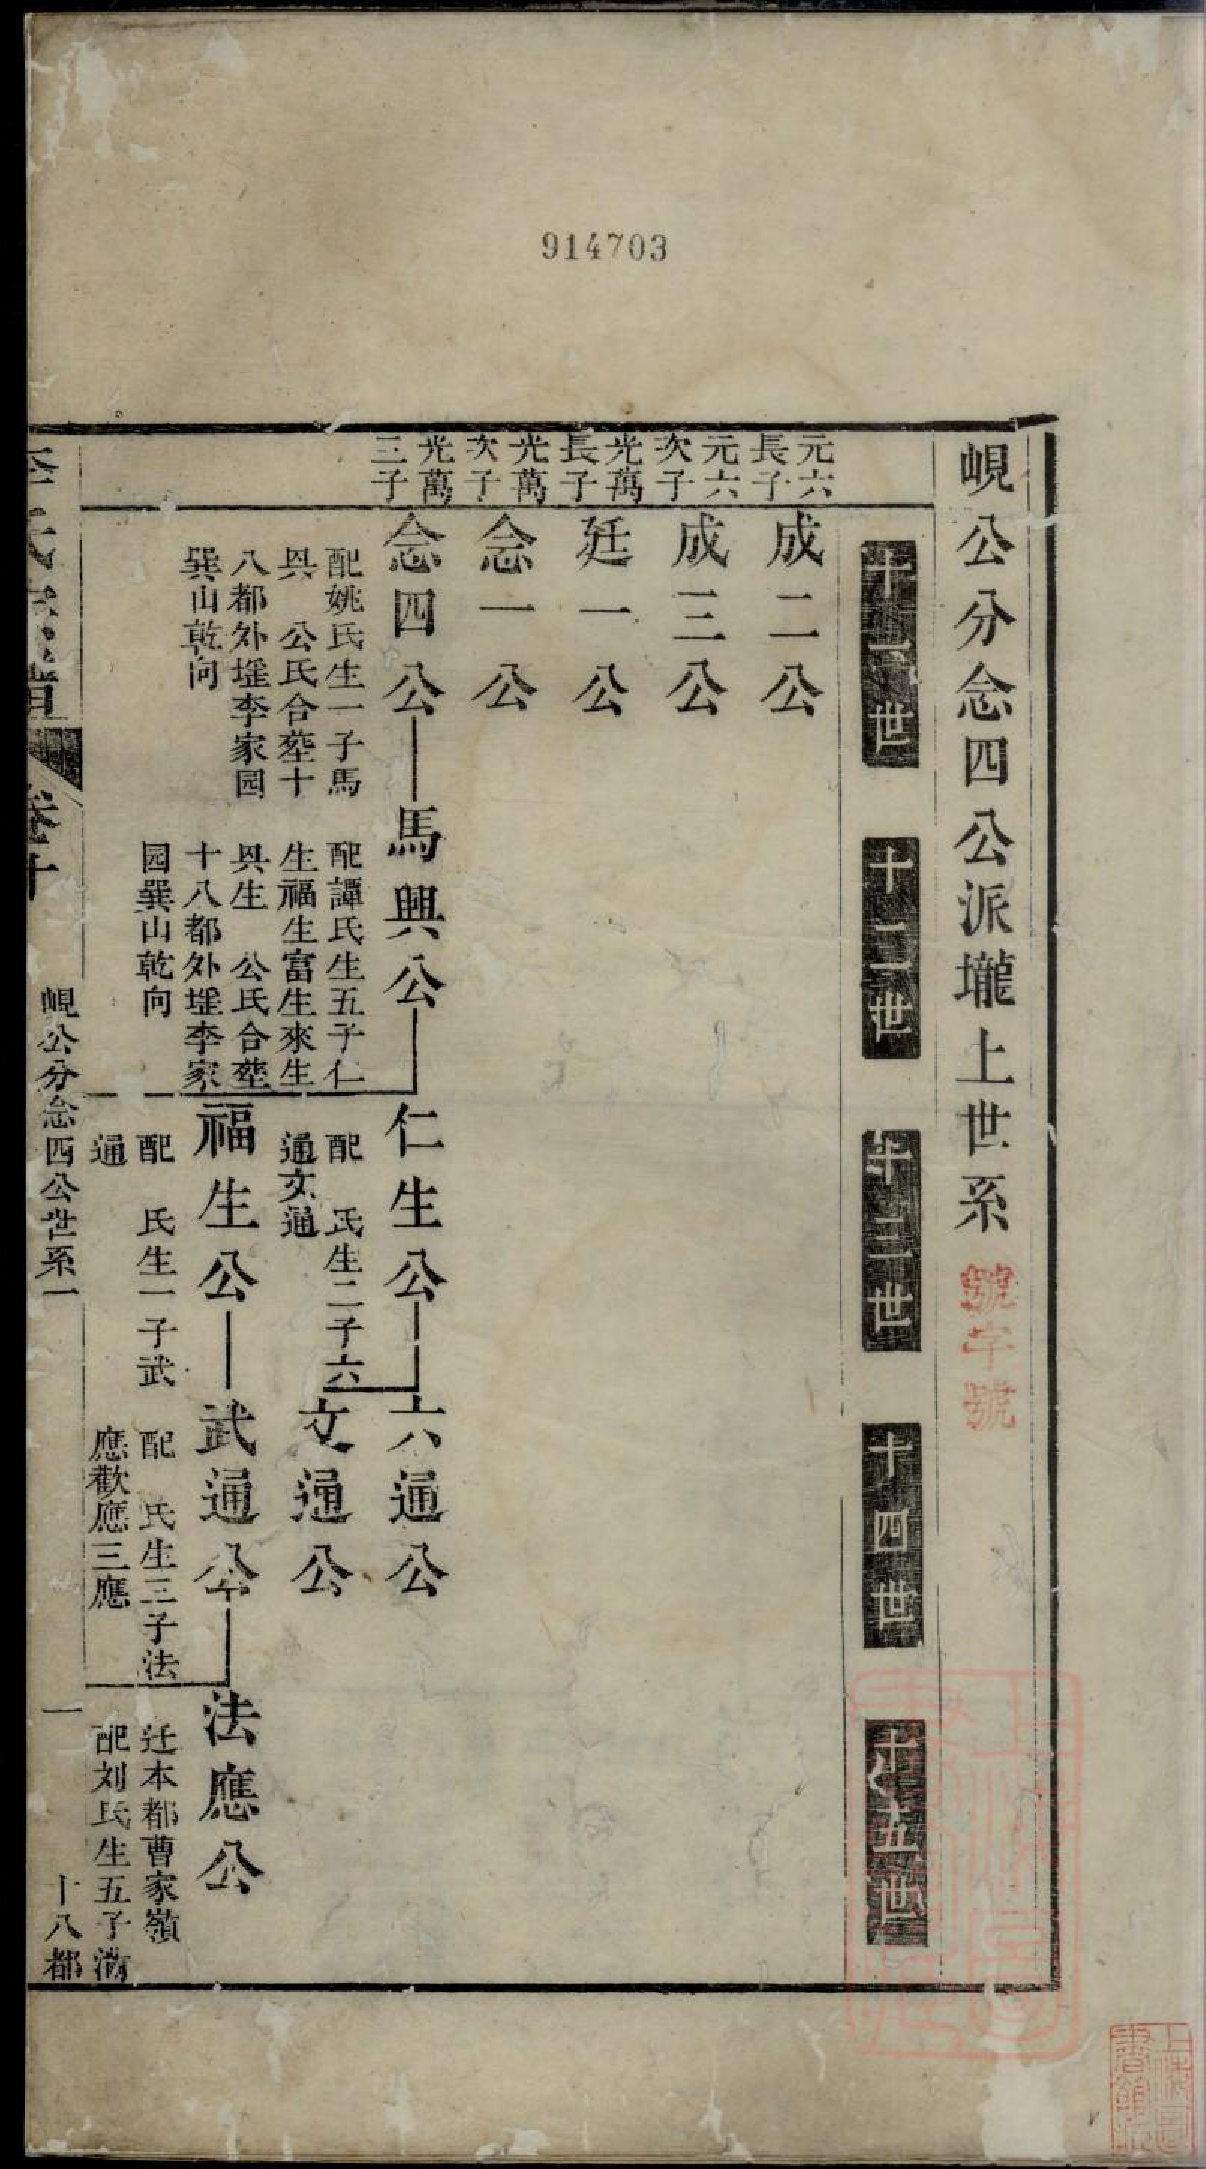 914703
峴公分念四公派壠上世系
號字號
十一世
十二世
十三世
十四世
十五世
元六
長子
成二公
元六
次子
成三公
光萬
長子
廷一公
光萬
次子
念一公
光萬
三子
念四公
配姚氏生一子馬
㒷 公氏合塟十
八都外塸李家园
巽山乾向
馬興公
配譚氏生五子仁
生福生富生來生
㒷生 公氏合塟
十八都外塸李家
园巽山乾向
仁生公
配 氏生二子六
通文通
六通公
文通公
福生公
配 氏生一子武
通
武通公
配 氏生三子法
應歡應三應
法應公
迁本都曹家嶺
配刘氏生五子
李氏宗譜
卷十
峴公分念四公世系一
一
十八都
上海圖書館藏